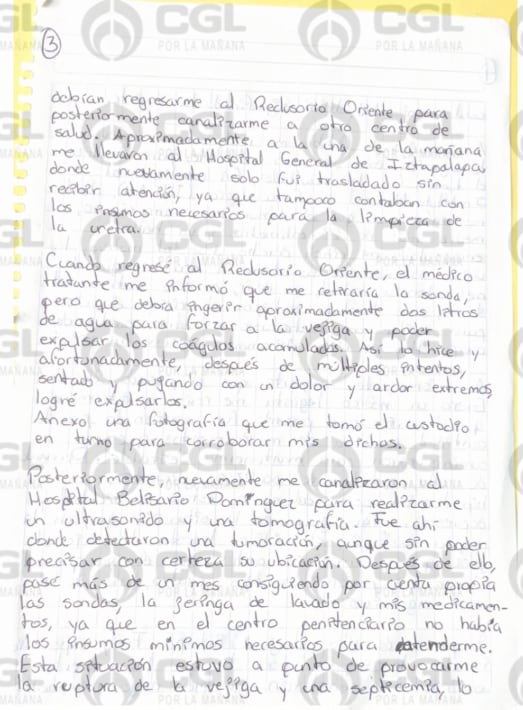 3
debían regresarme al Reclusorio Oriente para
posteriormente canalizarme a otro centro de
salud. Aproximadamente a la una de la mañana
me llevaron al Hospital General de Iztapalapa,
donde nuevamente solo fui trasladado sin
recibir atención, ya que tampoco contaban con
los insumos necesarios para la limpieza de
la uretra.
Cuando regresé al Reclusorio Oriente, el médico
tratante me informó que me retiraría la sonda,
pero que debía ingerir aproximadamente dos litros
de agua para forzar a la vejiga y poder
expulsar los coágulos acumulados. Así lo hice y
afortunadamente, después de múltiples intentos,
sentado y pujando con un dolor y ardor extremos,
logré expulsarlos.
Anexo una fotografía que me tomó el custodio
en turno para corroborar mis dichos.
Posteriormente, nuevamente me canalizaron al
Hospital Belisario Domínguez para realizarme
un ultrasonido y una tomografía. Fue ahí
donde detectaron una tumoración, aunque sin poder
precisar con certeza su ubicación. Después de ello,
pasé más de un mes consiguiendo por cuenta propia
las sondas, la jeringa de lavado y mis medicamen-
tos, ya que en el centro penitenciario no había
los insumos mínimos necesarios para atenderme.
Esta situación estuvo a punto de provocarme
la ruptura de la vejiga y una septicemia, lo
CGL
POR LA MAÑANA